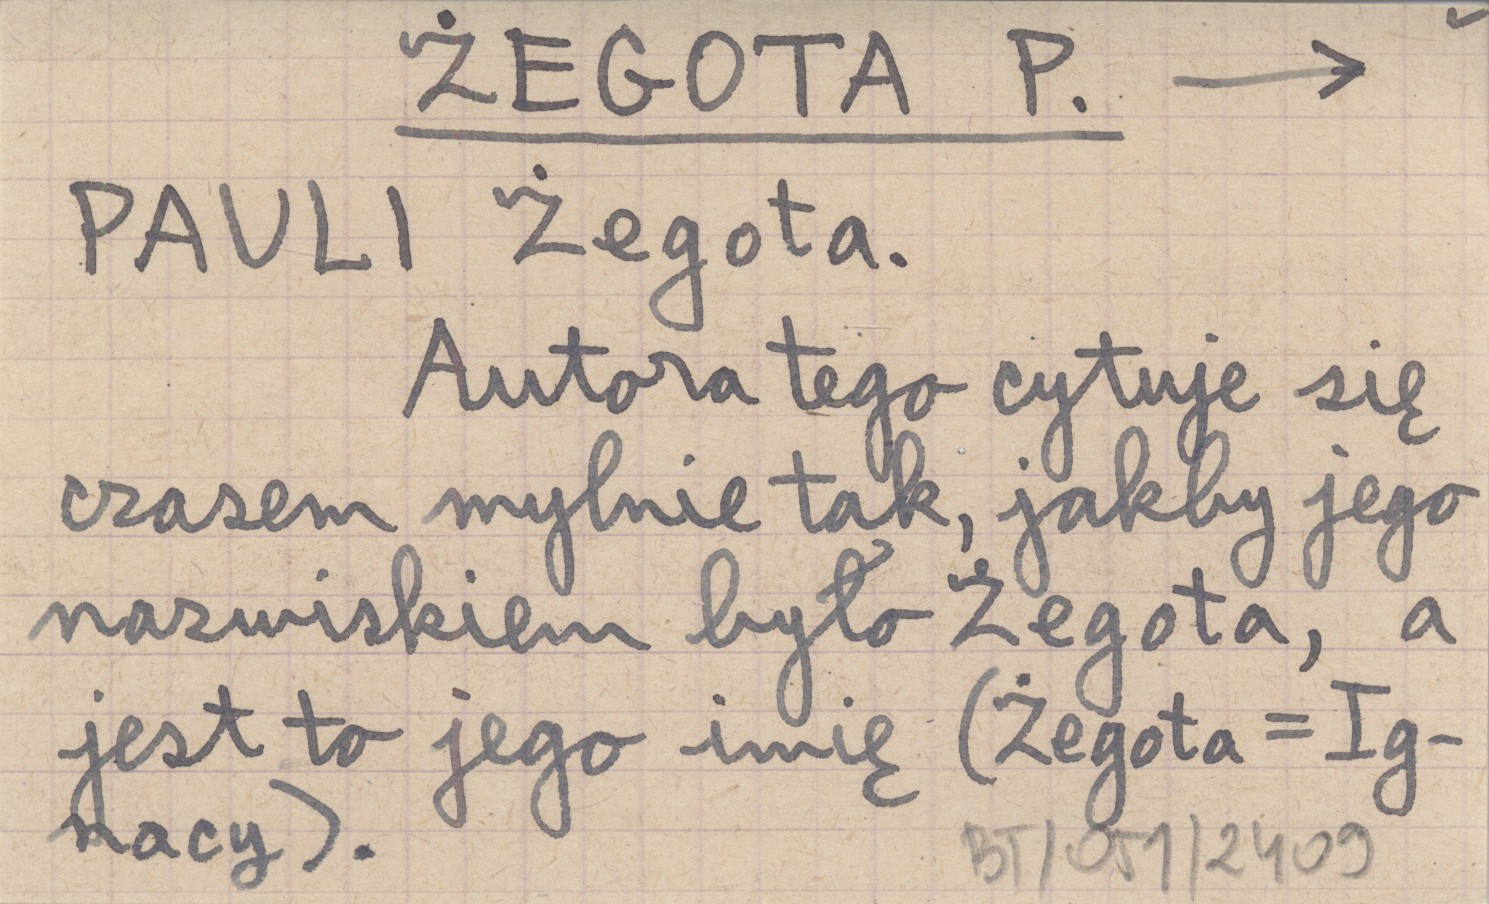 ŻEGOTA P. →
PAULI Żegota.
Autora tego cytuje się
czasem mylnie tak, jakby jego
nazwiskiem było Żegota, a
jest to jego imię (Żegota = Ig-
nacy).
BT/051/2409